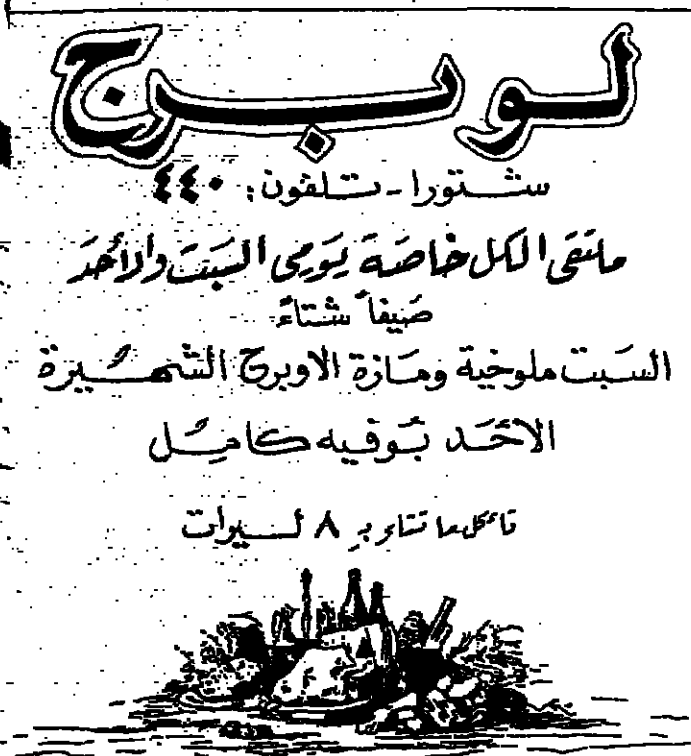 لوبرج
شتورا - تلفون: ٤٤٠
ملتقى الكل خاصة يومي السبت والأحد
صيفاً شتاءً
السبت ملوخية ومازة الاوبرج الشهيرة
الأحد بوفيه كامل
تأكل ما تشاء بـ ٨ ليرات